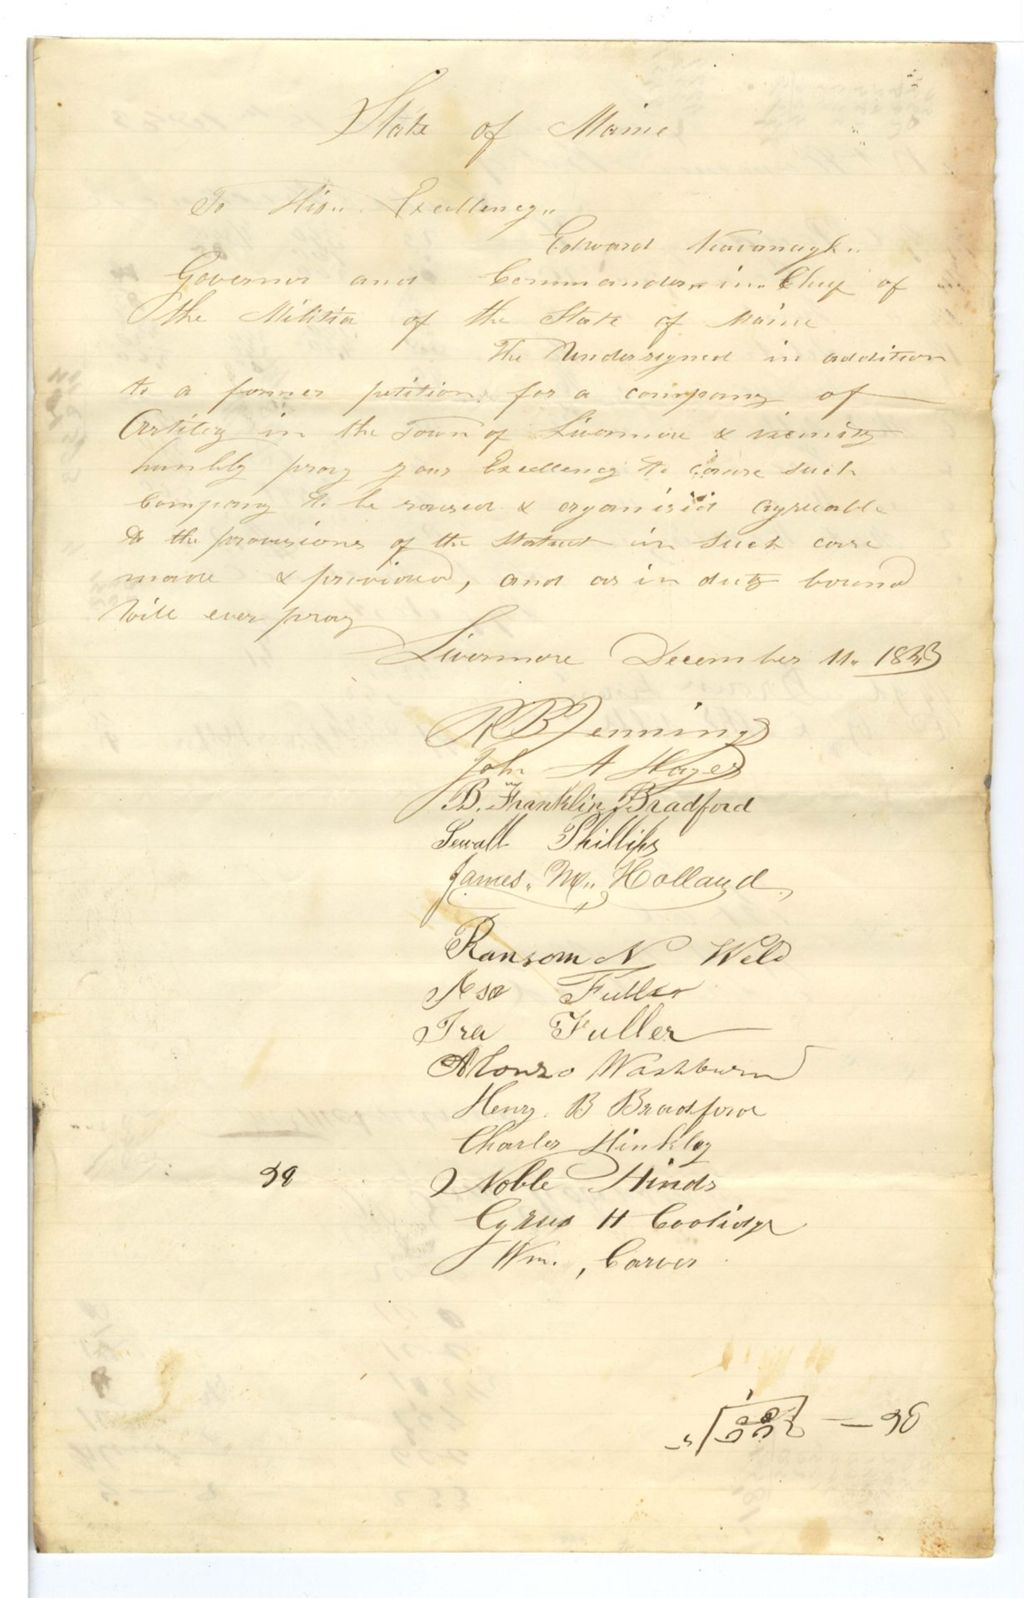 State of Maine
To His Excellency
Edward Kavanagh
Governor and Commander in Chief of
the Militia of the State of Maine
The Undersigned in addition
to a former petition for a company of
Artilery in the Town of Livermore & vicinity
humbly pray your Excellency to cause such
Company to be raised & organised agreable
to the provisions of the Statues in such case
made & provided, and as in duty bound
Will ever pray
Livermore December 11. 1843
R B Jennings
John A Hayes
B. Franklin Bradford
Sewall Phillips
James. M. Holland
Ransom N Weld
Asa Fuller
Ira Fuller
Alonzo Washburn
Henry. B Bradford
Charles Hinkley
Noble Hinds
Cyrus H Coolidge
Wm. Carver